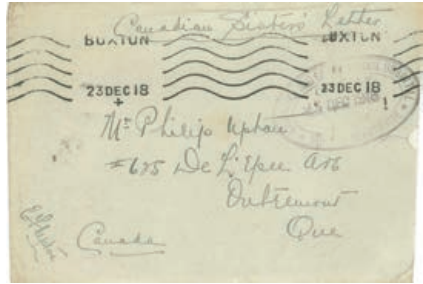 Canadian Sister's Letter
BUXTON BUXTON
23 DEC 18 23 DEC 18
Mr Philip Upham
#675 De L'Epee Ave
Outremont
Que
Canada